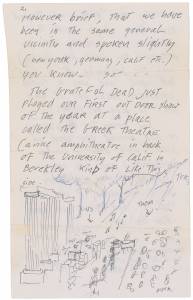 2.
However brief, that we have
been in the same general
vicinity and spoken slightly
(new york, germany, calif etc.)
you know— so—
The Grateful Dead just
played our first out door show
of the year at a place
called the Greek Theatre
(a nice amphitheatre in back
of the University of Calif in
Berekley kind of like this
THEM